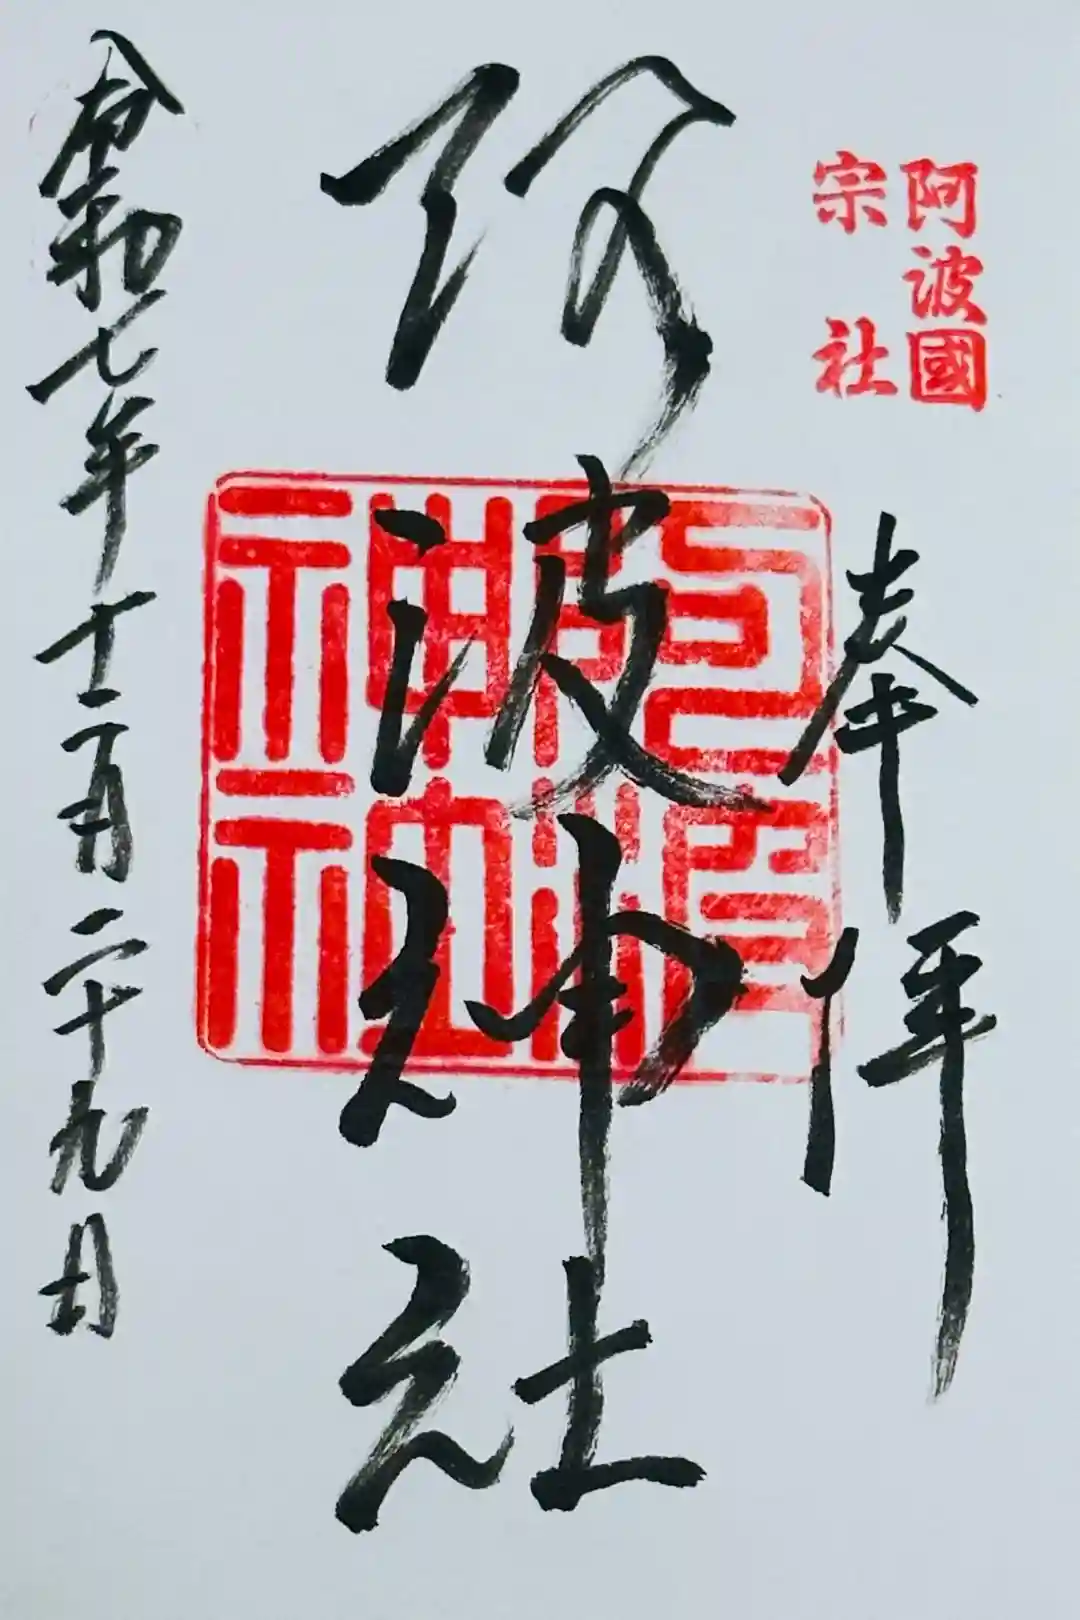 阿波國
宗社
奉拝
阿波神社
阿波神社
令和七年十二月二十九日